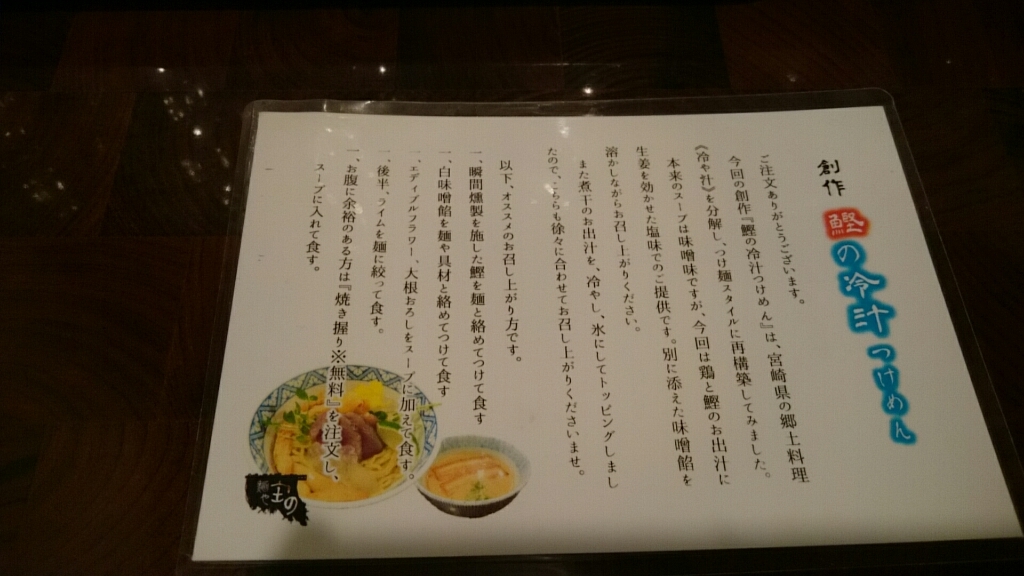 創作 鰹の冷汁つけめん
ご注文ありがとうございます。
今回の創作『鰹の冷汁つけめん』は、宮崎県の郷土料理
《冷や汁》を分解し、つけ麺スタイルに再構築してみました。
本来のスープは味噌味ですが、今回は鶏と鰹のお出汁に
生姜を効かせた塩味でのご提供です。別に添えた味噌餡を
溶かしながらお召し上がりください。
また煮干のお出汁を、冷やし、氷にしてトッピングしまし
たので、こちらも徐々に合わせてお召し上がりくださいませ。
以下、オススメのお召し上がり方です。
一、瞬間燻製を施した鰹を麺と絡めてつけて食す
一、白味噌餡を麺や具材と絡めてつけて食す
一、エディブルフラワー、大根おろしをスープに加えて食す。
一、後半、ライムを麺に絞って食す。
一、お腹に余裕のある方は『焼き握り※無料』を注文し、
スープに入れて食す。
麺や